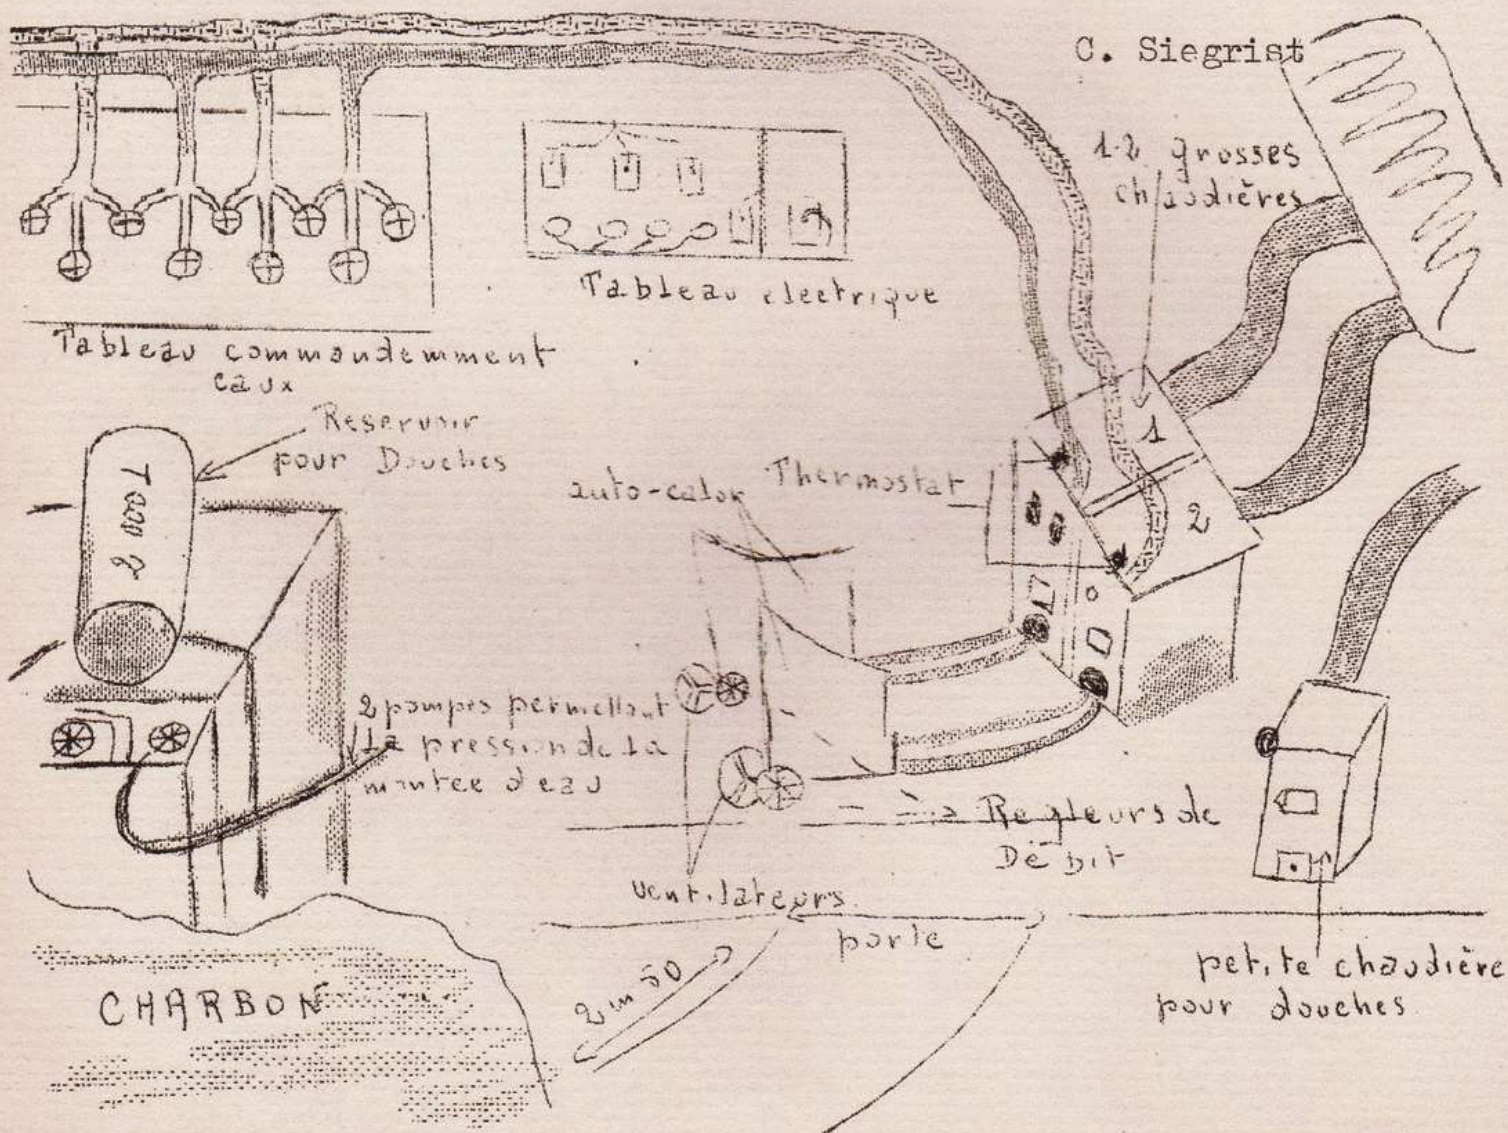 C. Siegrist
1-2 grosses
chaudières
Tableau electrique
Tableau commandemment
eaux
Reservoir
pour Douches
auto-calor
Thermostat
1
2
2 pompes permettant
la pression de la
montee d'eau
Regleurs de
Débit
ventilateurs
porte
2 m 50
CHARBON
petite chaudière
pour douches